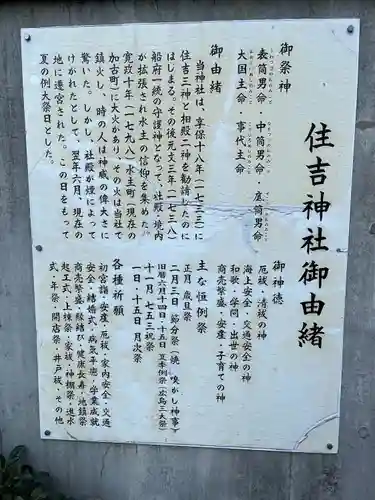 住吉神社御由緒
御祭神
表筒男命・中筒男命・底筒男命
大国主命・事代主命
御由緒
当神社は、享保十八年(一七三三)に
住吉三神と相殿二神を勧請したのに
はじまる。その後元文三年(一七三八)
船府一統の守護神となって、社殿・境内
が拡張され水主の信仰を集めた。
寛政十年(一七九八)水主町(現在の
加古町)に大火があり、その火は当社で
鎮火し、時の人は神威の偉大さに
驚いた。しかし、社殿が煙によって
けがれたとして、翌年六月、現在の
地に遷宮された。この日をもって
夏の例大祭日とした。
御神徳
厄祓・清祓の神
海上安全・交通安全の神
和歌・学問・出世の神
商売繁盛・安産・子育ての神
主な恒例祭
正月 歳旦祭
二月三日 節分祭(焼嗅がし神事)
旧暦六月十四日・十五日 夏季例祭(広島三大祭)
十一月 七五三祝祭
一日・十五日 月次祭
各種祈願
初宮詣・安産・厄祓・家内安全・交通
安全・結婚式・病気平癒・学業成就
商売繁盛・縁結び・健康長寿・地鎮祭
起工式・上棟祭・家祓・神棚祭・進水
式・年祭・開店祭・井戸祓・その他